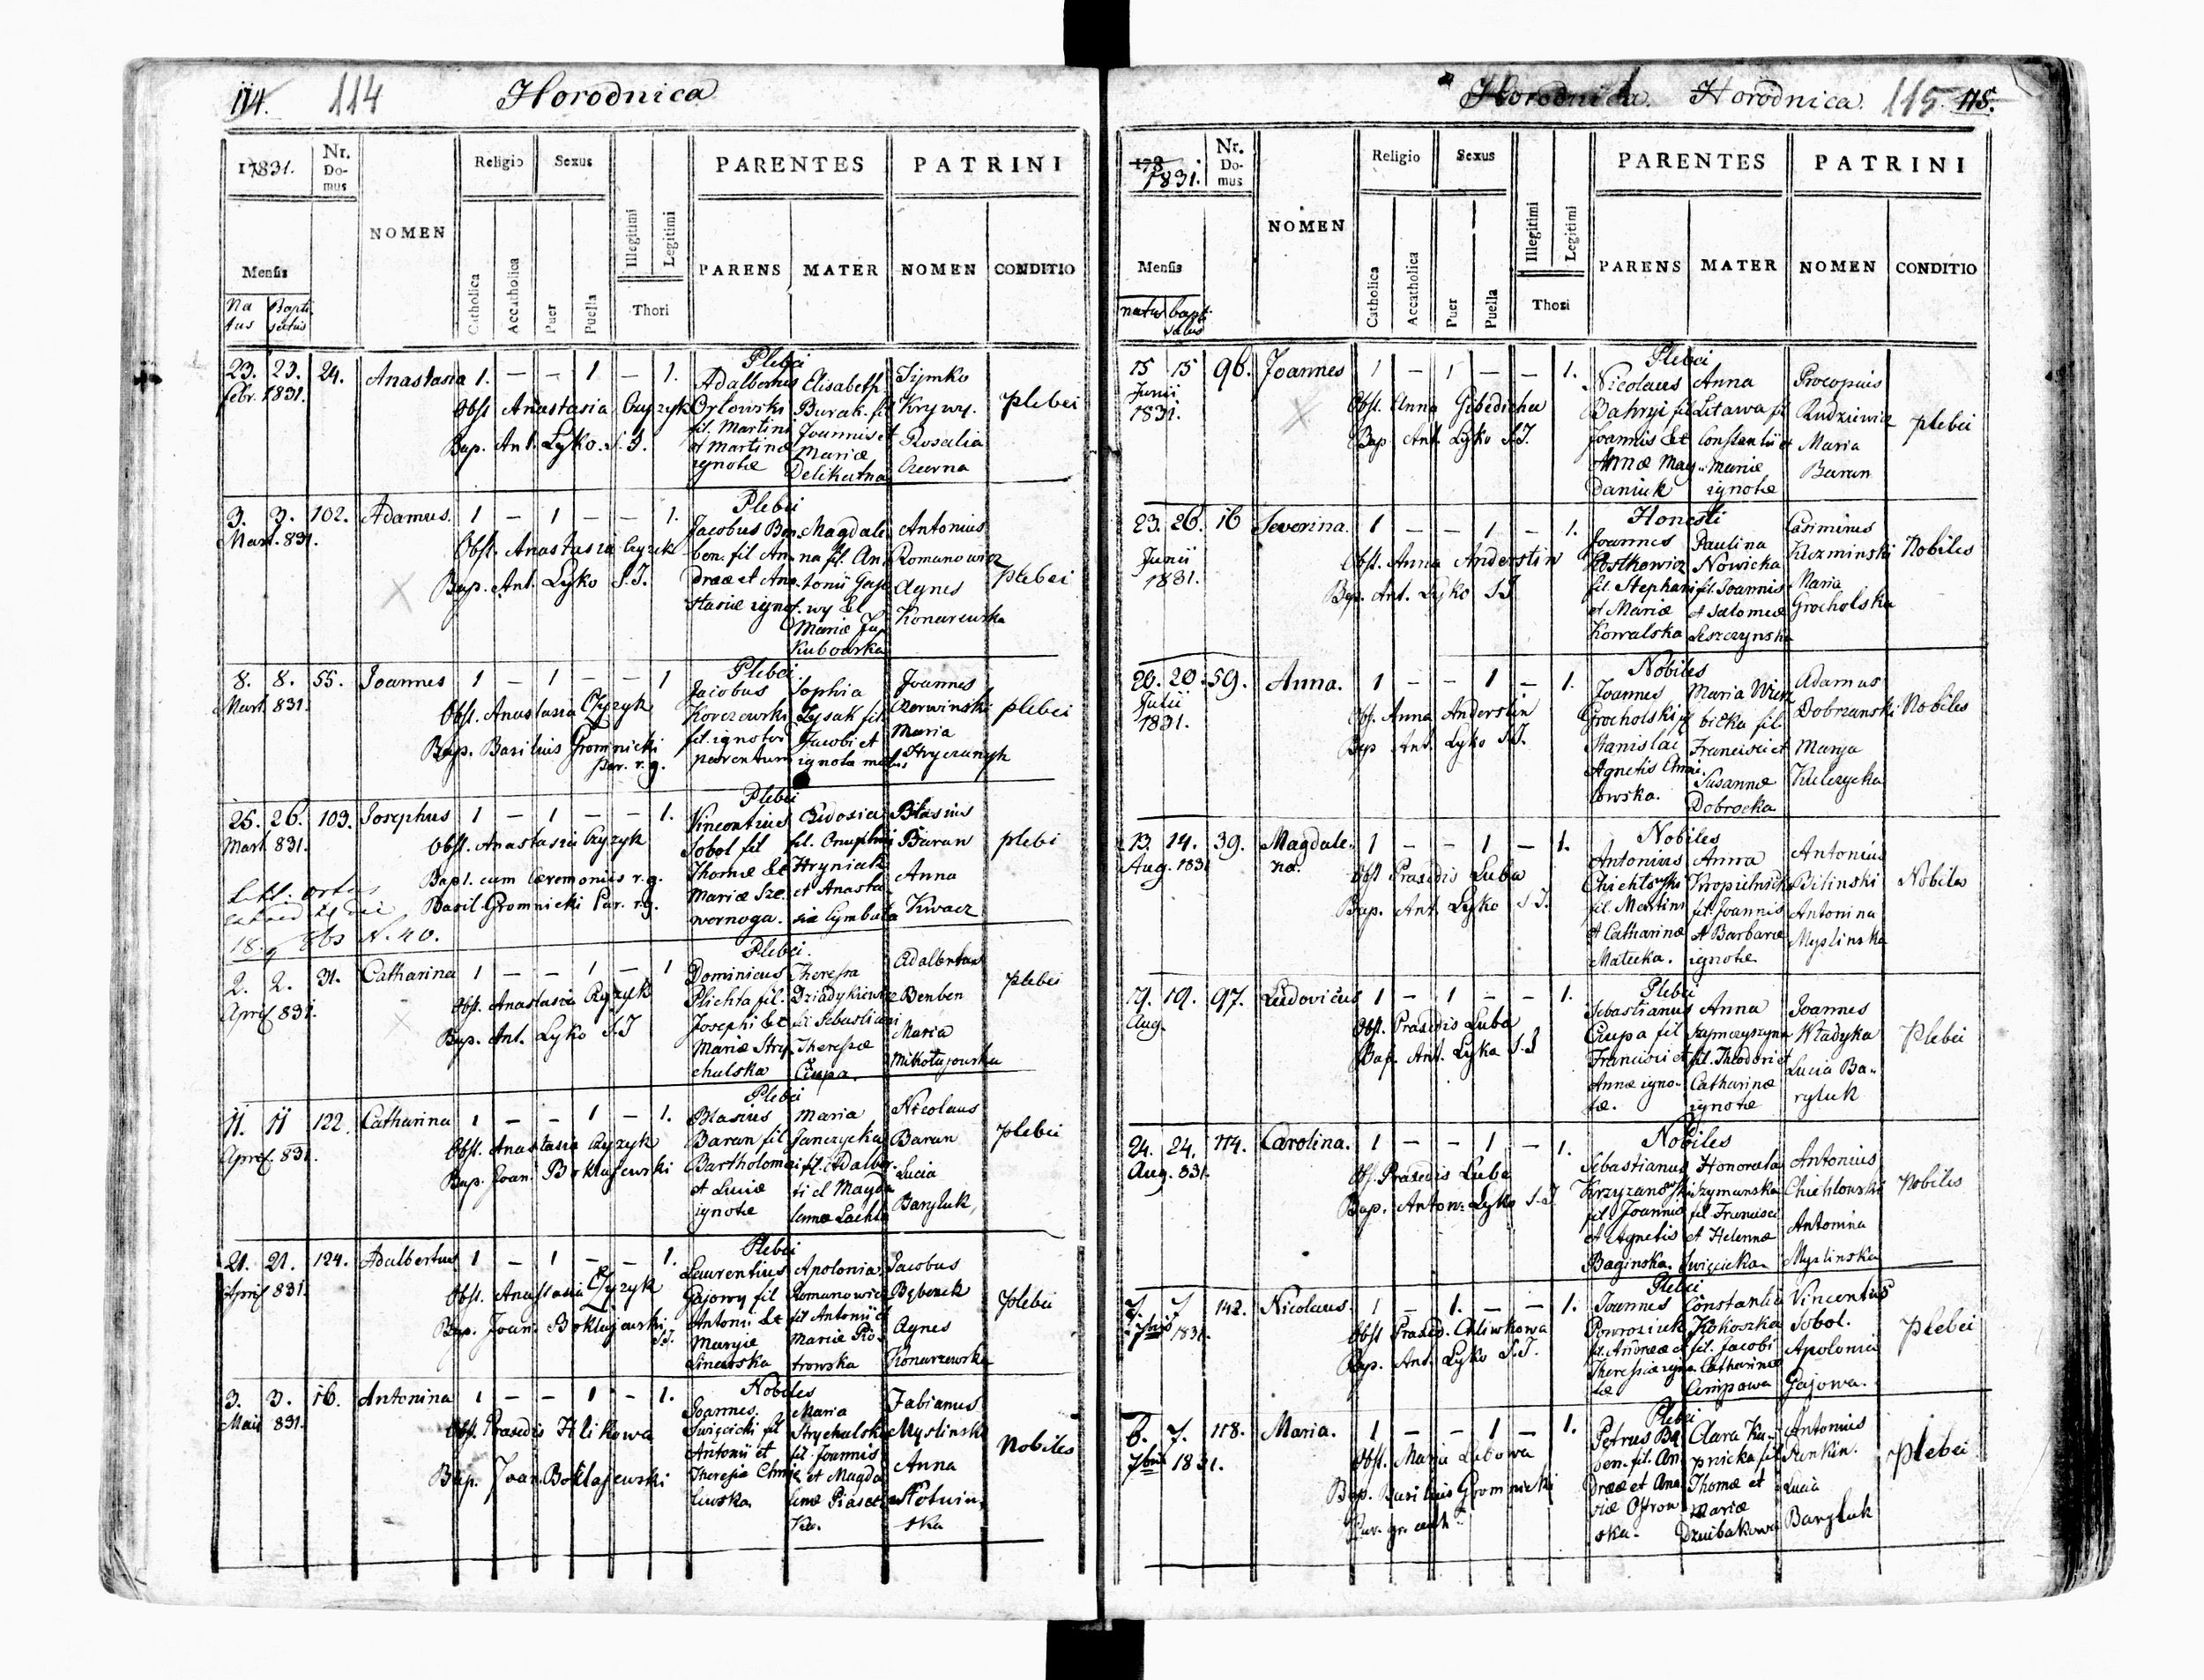 114. 114 Horodnica
17831. Nr. Domus NOMEN Religio Sexus PARENTES PATRINI
Mensis Catholica Accatholica Puer Puella Illegitimi Legitimi Thori PARENS MATER NOMEN CONDITIO
Natus Baptisatus
Plebei
23. 23. 24. Anastasia 1. – – 1 – 1. Adalbertus Elisabeth Tymko
febr. 1831. Obst. Anastasia Czyzyk Orłowski Burak. fil Krywy. plebei
Bap. Ant. Lyko. S. J. fil. Martini Joannis et Rosalia
et Martinæ Mariæ
ignotæ Delikatna
Plebei
3. 3. 102. Adamus. 1 – 1 – – 1. Jacobus Ben- Magdale- Antonius
Mart. 831. Obst. Anastasia Czyzyk ben. fil An- na fil. An- Romanowicz
Bap. Ant. Lyko S. J. dreæ et Ana- tonii Gajo- Agnes plebei
stasiæ ignot. wy et Konarewska
Mariæ
Kubowska
Plebei
8. 8. 55. Joannes 1 – 1 – – 1 Jacobus Sophia Joannes
Mart. 831. Obst. Anastasia Czyzyk Korczewski Lysak fil. Czerwinski plebei
Bap. Basilius Gromnicki fil. ignotor Jacobi et Maria
Par. r. g. parentum ignota
Plebei
25. 26. 103. Josephus 1 – 1 – – 1. Vincentius Eudosia Blasius
Mart. 831. Obst. Anastasia Czyzyk Sobol fil fil. Onuphrii Baran plebi
Bapt. cum cæremoniis r. g. Thomæ et Hryniak Anna
Basil Gromnicki Par. r. g. Mariæ Sze- et Anasta- Kwacz
wornoga. siæ Cymbała
N. 40.
Plebei.
2. 2. 31. Catharina 1 – – 1 – 1 Dominicus Theressa Adalbertus
April 831. Obst. Anastasia Czyzyk Plichta fil. Dziadykiewicz Benben plebei
Bap. Ant. Lyko S. J Josephi et fil Sebastiani Maria
Mariæ Stry- Theressæ Mikołajowska
chalska Ciupa.
Plebei
11. 11 122. Catharina 1 – – 1 – 1. Blasius Maria Nicolaus
April. 831. Obst. Anastasia Czyzyk Baran fil Janczycka Baran plebei
Bap. Joan. Boklajewski Bartholomei fil. Adalber- Lucia
et Luciæ ti et Magda Baryluk
ignotæ lenæ Lachta
Plebei
21. 21. 124. Adalbertus 1 – 1 – – 1. Laurentius Apolonia Jacobus
April 831. Obst. Anastasia Czyzyk Gajowy fil Romanowicz Bębenek plebei
Bap. Joan. Boklajewski S. J. Antoni et fil Antonii et Agnes
Maryæ Mariæ Pio- Konarzewska
Linewska trowska
Nobiles
3. 3. 16. Antonina 1 – – 1 – 1. Joannes. Maria Fabianus
Maii 831. Obst. Prasedis Hlikowa Swięcicki fil Strychalska Myslinski
Bap. Joan. Boklajewski Antonii et fil. Joannis Anna Nobiles
Theresiæ Chmie et Magda Kotwin-
lewska. lenæ Piasec- ska
ka.
Horodnica. Horodnica. 115. 115.
178 1831. Nr. Domus NOMEN Religio Sexus PARENTES PATRINI
Mensis Catholica Accatholica Puer Puella Illegitimi Legitimi Thori PARENS MATER NOMEN CONDITIO
natus baptisatus
Plebei
15 15 96. Joannes 1 – 1 – – 1. Nicolaus Anna Procopius
Junii Obst. Anna Gebedicha Bahryi fil Litawa fil Rudziewicz plebei
1831. Bap Ant. Lyko S. J. Joannis et Constantii et Maria
Annæ Mag- Mariæ Baran
Daniuk ignotæ
Honesti
23. 26. 16 Severina. 1 – – 1 – 1. Joannes Paulina Casimirus
Junii Obst. Anna Anderstin Kostkowicz Nowicka Klozminski Nobiles
1831. Bap. Ant. Lyko S J fil. Stephani fil. Joannis Maria
et Mariæ et Salomeæ Grocholska
Kowalska Leszczynska
Nobiles
20. 20. 59. Anna. 1 – – 1 – 1. Joannes Maria Wierz Adamus
Julii Obst. Anna Anderstin Grocholski fil bicka fil. Dobrzanski Nobiles
1831. Bap Ant. Lyko S. J. Stanislai Francisci et Marya
Agnetis Chmie- Susannæ Kulczycka
lowska. Dobrocka
Nobiles
13. 14. 39. Magdale- 1 – – 1 – 1. Antonius Anna Antonius
Aug. 1831 na. Obst Prasedis Luba Chichłowski Kropielnicka Bilinski Nobiles
Bap. Ant. Lyko S J. fil. Martini fil. Joannis Antonina
et Catharinæ et Barbaræ Myslinska
Malecka. ignotæ
Plebei
19. 19. 97. Ludovicus 1 – 1 – – 1. Sebastianus Anna Joannes
Aug. Obst. Prasedis Luba Ciupa fil Szymczyszyna Władyka Plebei
Bap. Ant. Lyka S. J Francisci et fil. Theodori et Lucia Ba-
Annæ igno- Catharinæ ryluk
tæ. ignotæ
Nobiles
24. 24. 114. Carolina. 1 – – 1 – 1. Sebastianus Honorata Antonius
Aug. 831. Obst. Prasedis Luba Krzyzanowski Szymanska Chichlowski Nobiles
Bap. Anton. Lyko S. J fil. Joannis fil Francisci Antonina
et Agnetis et Helennæ Myslinska
Baginska. Swięcicka
Plebei
7. 7 142. Nicolaus. 1 – 1. – – 1. Joannes Constantia Vincentius
7bris 1831. Obst Prased. Chliwkowa Powroziuk Kokoszka Sobol. Plebei
Bap. Ant. Lyko S. J. fil. Andreæ et fil. Jacobi Apolonia
Theressiæ igno- Catharinæ Gajowa.
tæ Cimpowa
Plebei
6. 7. 118. Maria. 1 – – 1 – 1. Petrus Ba- Clara Ku- Antonius
7bris 1831. Obst. Maria Lubowa ben. fil. An pnicka fil Punkin. plebei
Bap. Basilius Gromnicki dreæ et Ana Thomæ et Lucia
Par. gr. cath siæ Ostrow Mariæ Baryluk
ska. Dziubakowa